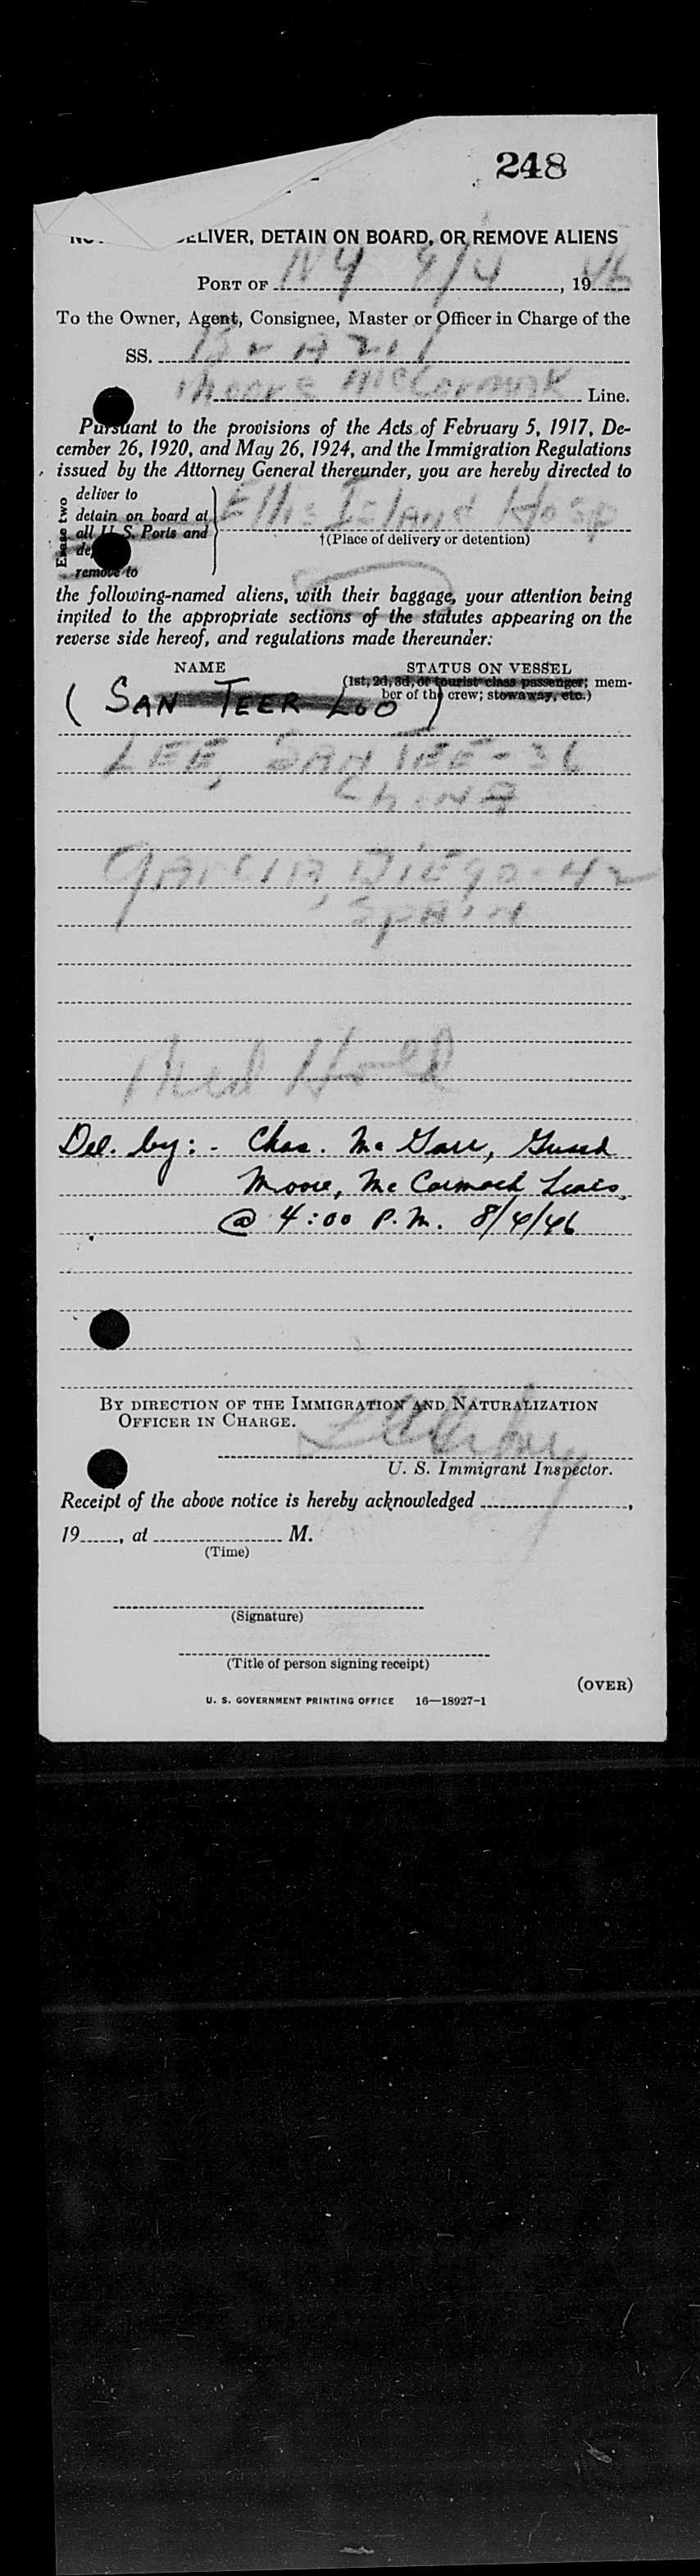 248
DELIVER, DETAIN ON BOARD, OR REMOVE ALIENS
PORT OF NY /4, 1946
To the Owner, Agent, Consignee, Master or Officer in Charge of the
SS. Brazil
Moore McCormack Line.
Pursuant to the provisions of the Acts of February 5, 1917, De-
cember 26, 1920, and May 26, 1924, and the Immigration Regulations
issued by the Attorney General thereunder, you are hereby directed to
Erase two
deliver to
detain on board at
all U. S. Ports and
remove to
Ellis Island Hosp
†(Place of delivery or detention)
the following-named aliens, with their baggage, your attention being
invited to the appropriate sections of the statutes appearing on the
reverse side hereof, and regulations made thereunder:
NAME STATUS ON VESSEL
(1st, 2d, 3d, or tourist class passenger; mem-
ber of the crew; stowaway, etc.)
(SAN TEER LOO)
LEE, SAN TEE - 36
CHINA
GARCIA, DIEGO - 42
SPAIN
Med Hold
Del. by: - Chas. McGarr, Guard
Moore, McCormack Lines,
@ 4:00 P.M. 8/4/46
BY DIRECTION OF THE IMMIGRATION AND NATURALIZATION
OFFICER IN CHARGE.
U. S. Immigrant Inspector.
Receipt of the above notice is hereby acknowledged ,
19 , at M.
(Time)
(Signature)
(Title of person signing receipt)
(OVER)
U. S. GOVERNMENT PRINTING OFFICE 16—18927-1